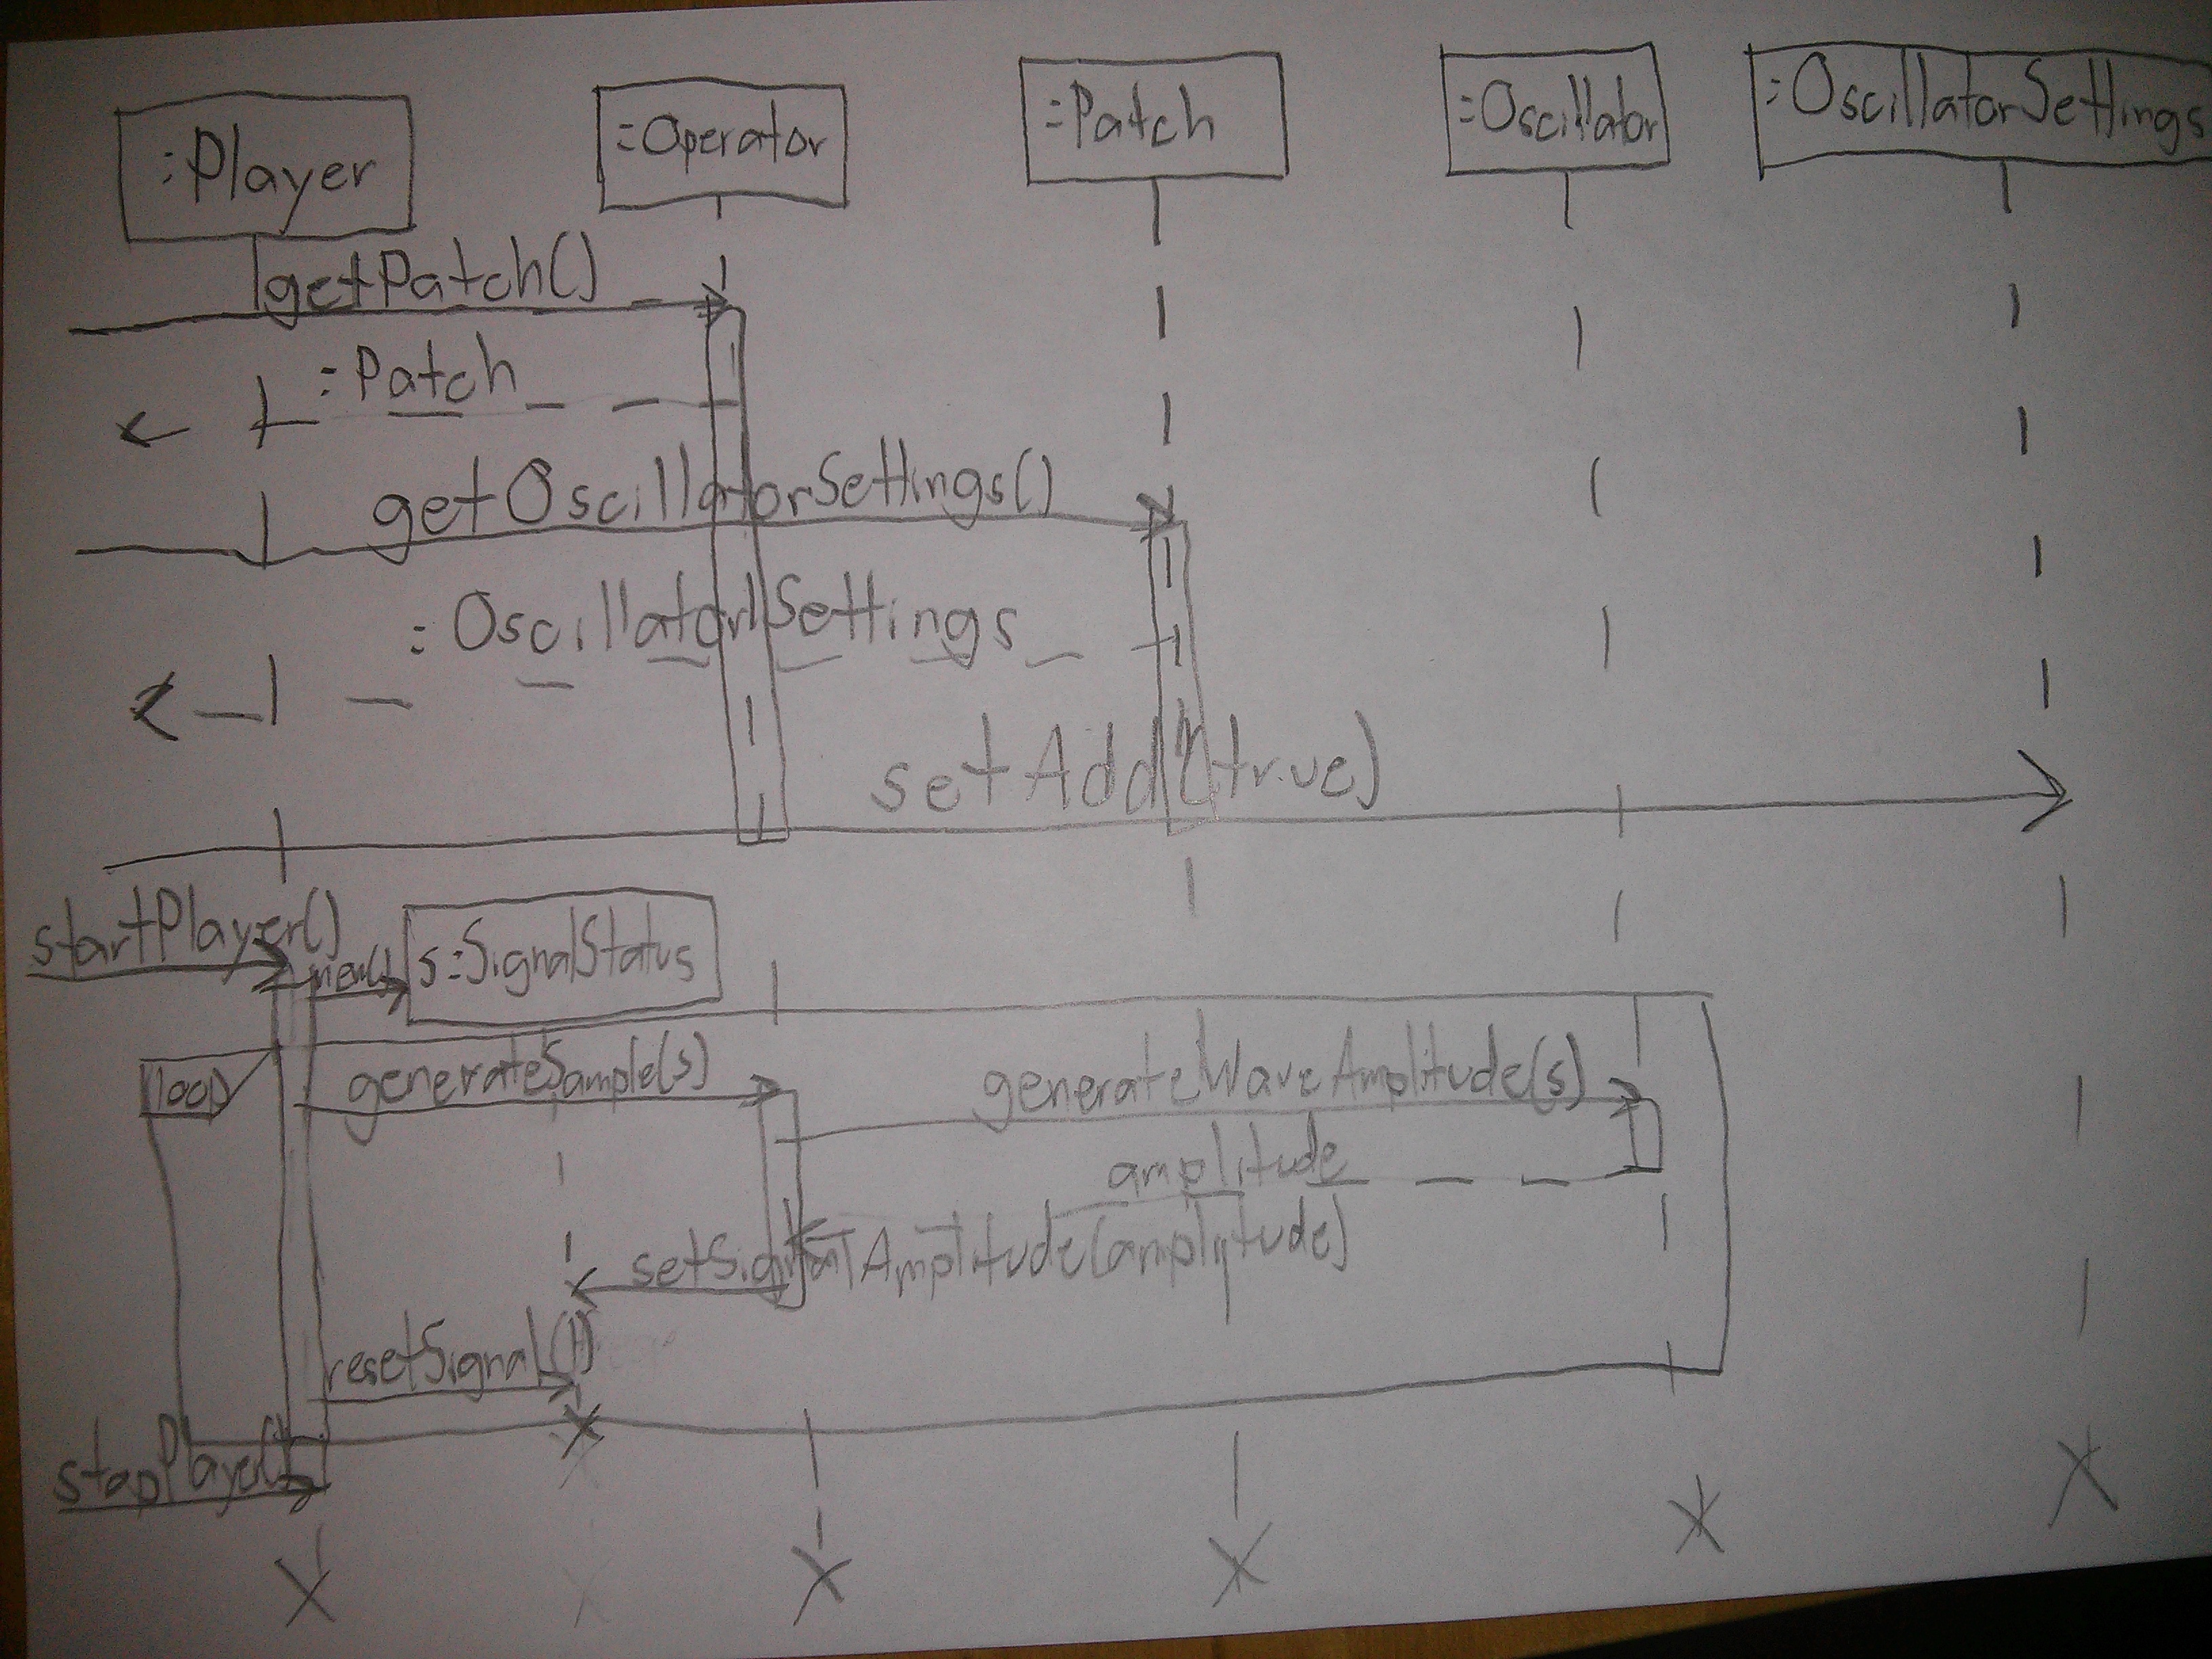 :Player
:Operator
:Patch
:Oscillator
:OscillatorSettings
getPatch()
:Patch
getOscillatorSettings()
:OscillatorSettings
setAdd(true)
startPlayer()
new()
s:SignalStatus
loop
generateSample(s)
generateWaveAmplitude(s)
amplitude
setSignalAmplitude(amplitude)
resetSignal()
stopPlayer()